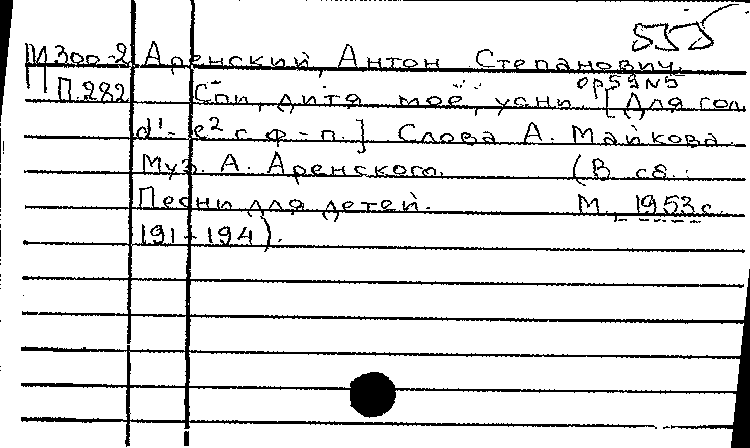 555
М300-2 Аренский, Антон Степанович.
П.282 Спи, дитя моё, усни. op59N5 [Для гол.
d¹-e² с ф-п.] Слова А. Майкова.
Муз. А. Аренского. (В сб.:
Песни для детей. М., 1953 с.
191-194).